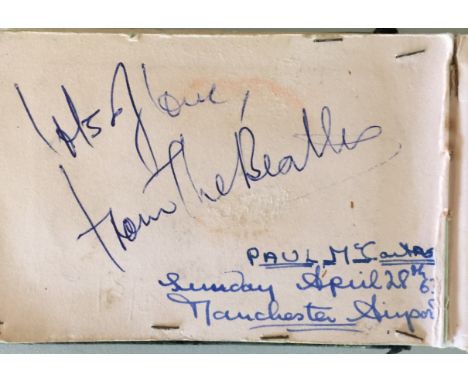 lots of love,
from The Beatles
PAUL Mc
Sunday April 28th 6
Manchester Airpor